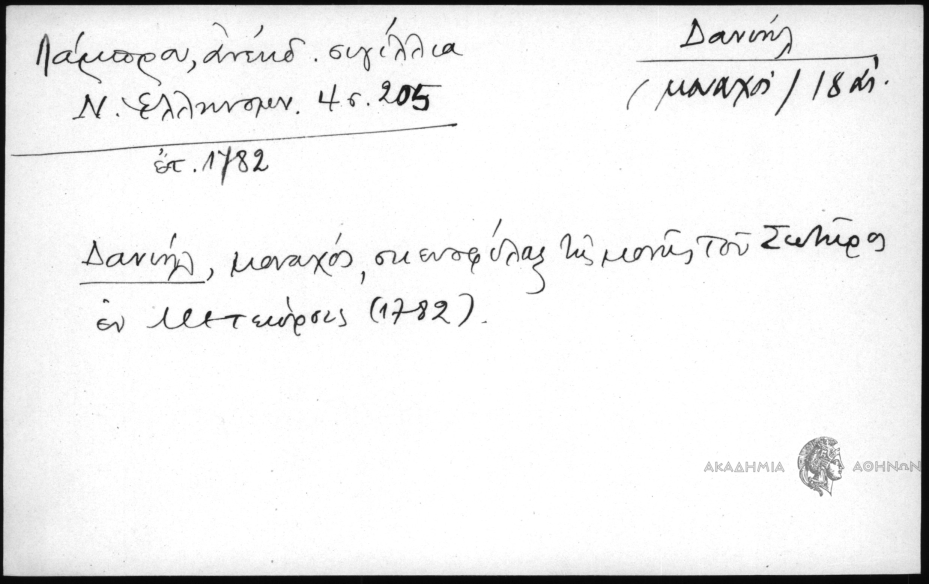 Λάμπρου, ἀνέκδ. σιγίλλια
Ν. Ἑλληνομν. 4 σ. 205
ἐτ. 1782
Δανιήλ
(μοναχός) 18 αἰ.
Δανιήλ, μοναχός, σκευοφύλαξ τῆς μονῆς τοῦ Σωτῆρος
ἐν Μετεώροις (1782).
ΑΚΑΔΗΜΙΑ ΑΘΗΝΩΝ